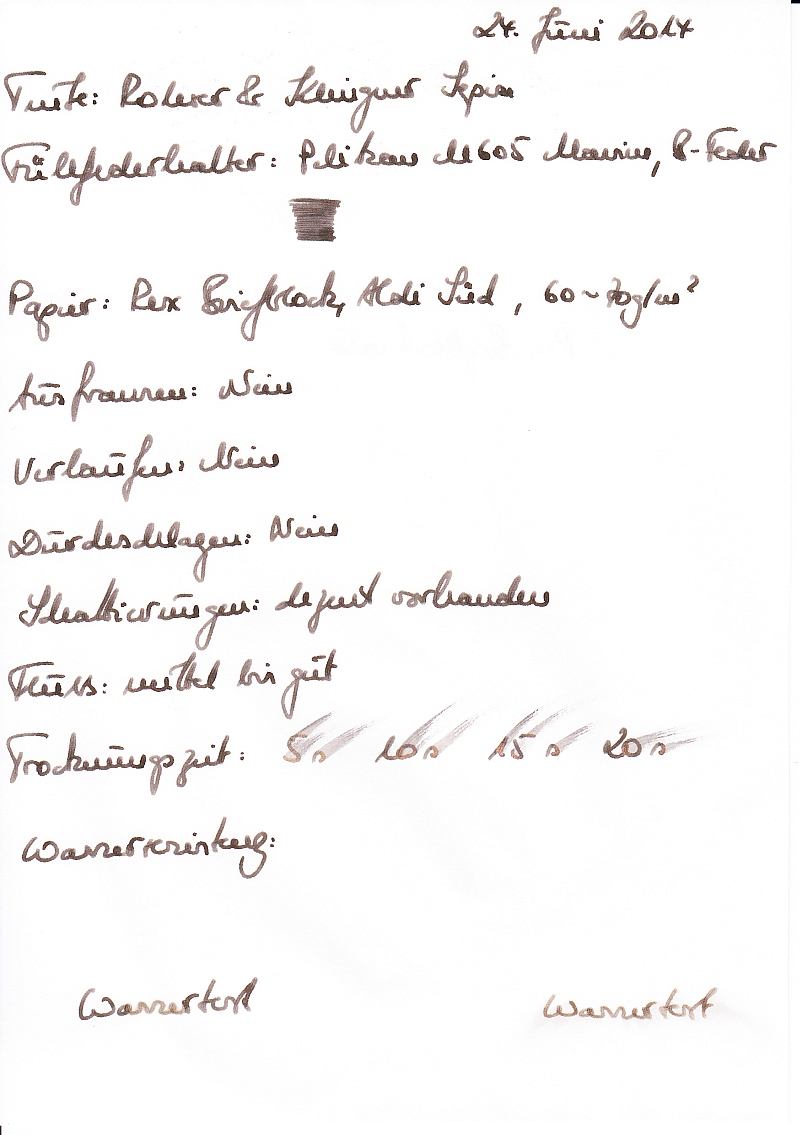 24. Juni 2014
Tinte: Rohrer & Klingner Sepia
Füllfederhalter: Pelikan M605 Marine, B-Feder
Papier: Rex Briefblock, Aldi Süd, 60~70g/m²
Ausfransen: Nein
Verlaufen: Nein
Durchschlagen: Nein
Schattierungen: dezent vorhanden
Fluss: mittel bis gut
Trocknungszeit: 5s 10s 15s 20s
Wassereinwirkung:
Wassertest Wassertest